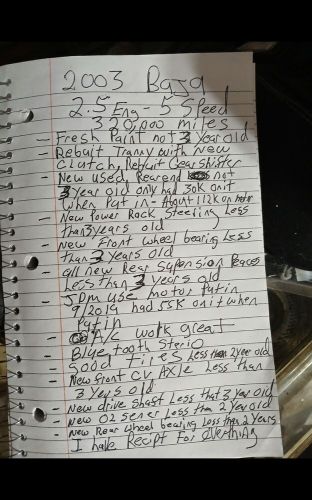 2003 Baja
2.5 Eng - 5 Speed
320,000 miles
- Fresh Paint not 3 year old
Rebuit Tranny with New
Clutch, Rebuit Gear Shister
- New used Rearend not
3 year old only had 30K on it
when Put in - About 112K on motor
- New Power Rack Steeling Less
than 3 years old
- New Front wheel bearing Less
than 3 years old
- all new Rear Supension Peaces
Less than 3 years old
- JDM use motor Putin
9/2019 had 55K on it when
Put in
- A/C work great
- Blue tooth Sterio
- Good Tires Less than 2 year old
- New front CV AXLE Less than
3 years old
- New drive Shaft Less that 3 year old
- New O2 Senser Less than 2 year old
- New Rear wheel bearing Less than 2 years
I have Recipt For everthing